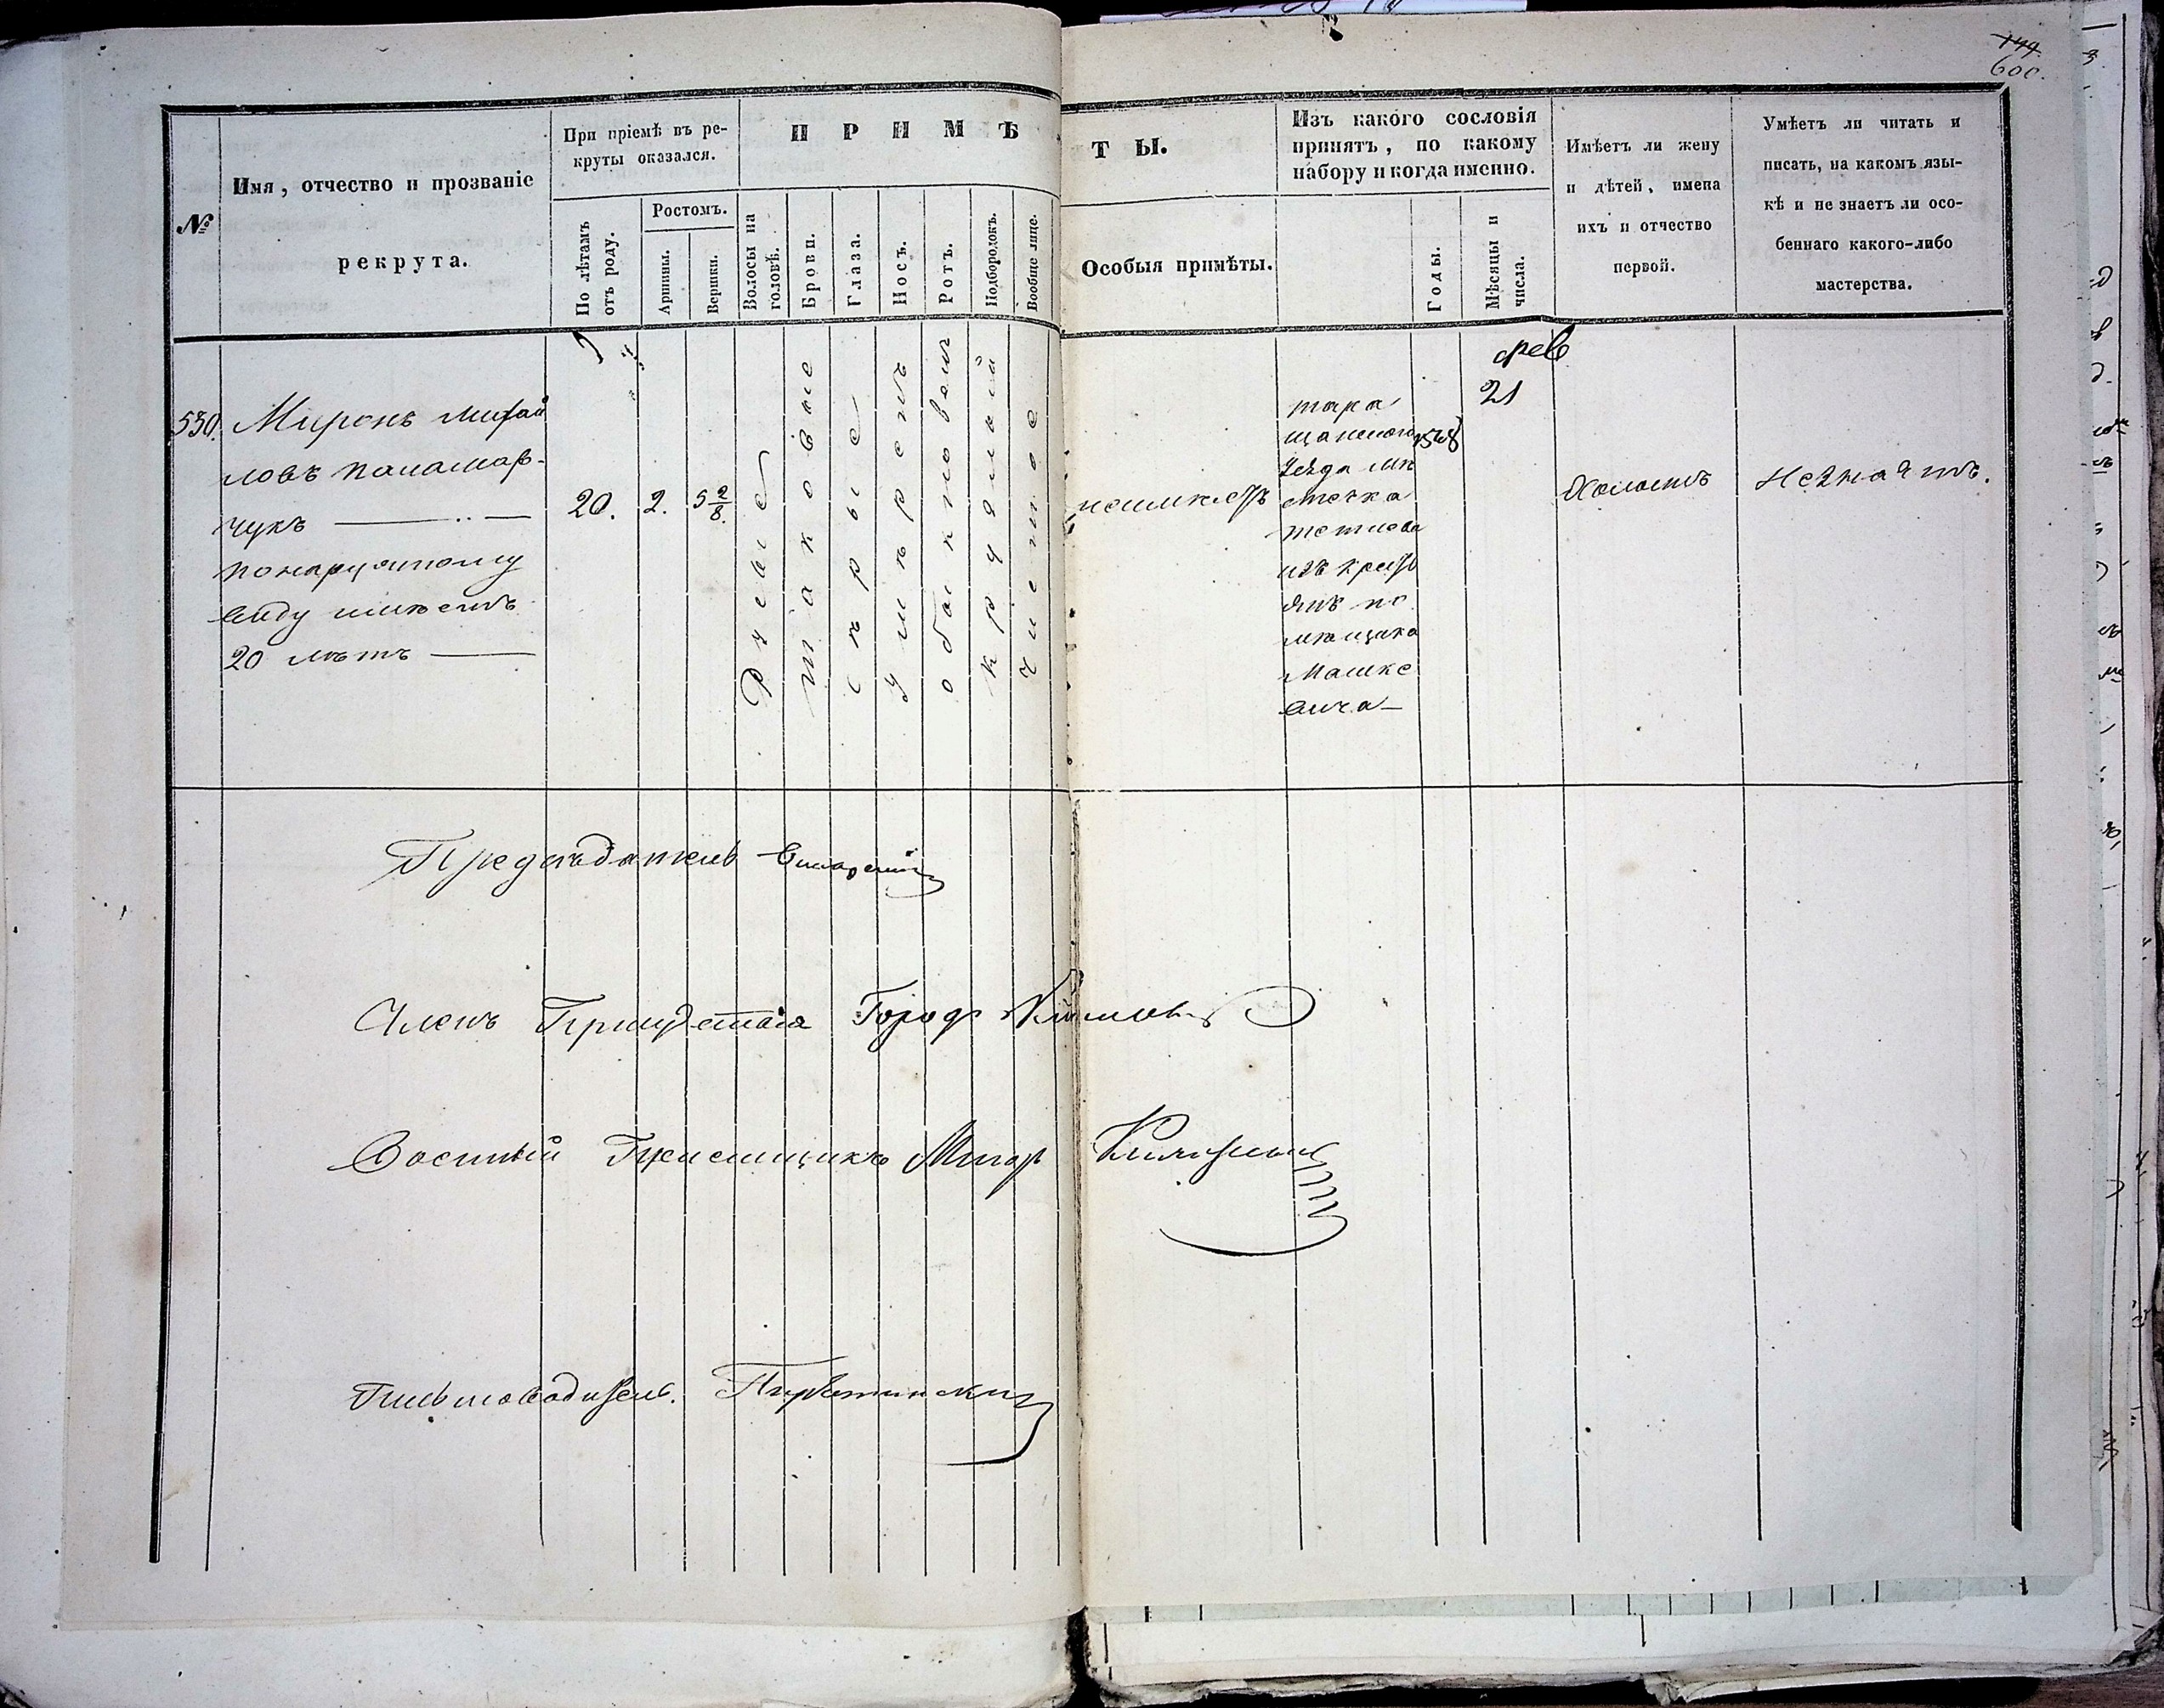 144.
600.
№
Имя, отчество и прозваніе
рекрута.
При пріемѣ въ ре-
круты оказался.
По лѣтамъ
отъ роду.
Ростомъ.
Аршины.
Вершки.
ПРИМѢ
ТЫ.
Волосы на
головѣ.
Брови.
Глаза.
Носъ.
Ротъ.
Подбородокъ.
Вообще лице.
Особыя примѣты.
Изъ какого сословія
принятъ, по какому
набору и когда именно.
Годы.
Мѣсяцы и
числа.
Имѣетъ ли жену
и дѣтей, имена
ихъ и отчество
первой.
Умѣетъ ли читать и
писать, на какомъ язы-
кѣ и не знаетъ ли осо-
беннаго какого-либо
мастерства.
530.
Миронъ Михай
ловъ Паламар-
чукъ
понаружному
виду имѣетъ
20 лѣтъ
20.
2.
5 2/8.
Русые
таковые
сѣрые
умѣренъ
обыкновен
круглой
чистое
неимѣетъ
тара
щанского
уезда мѣ
стечка
тетиева
изъ крест
янъ по
мѣщика
Машке
вича
фев
21
Холостъ
Незнаетъ.
Предсѣдатель
Членъ Присутствія Город
Военный Пріемщикъ Маіор
Письмоводитель.